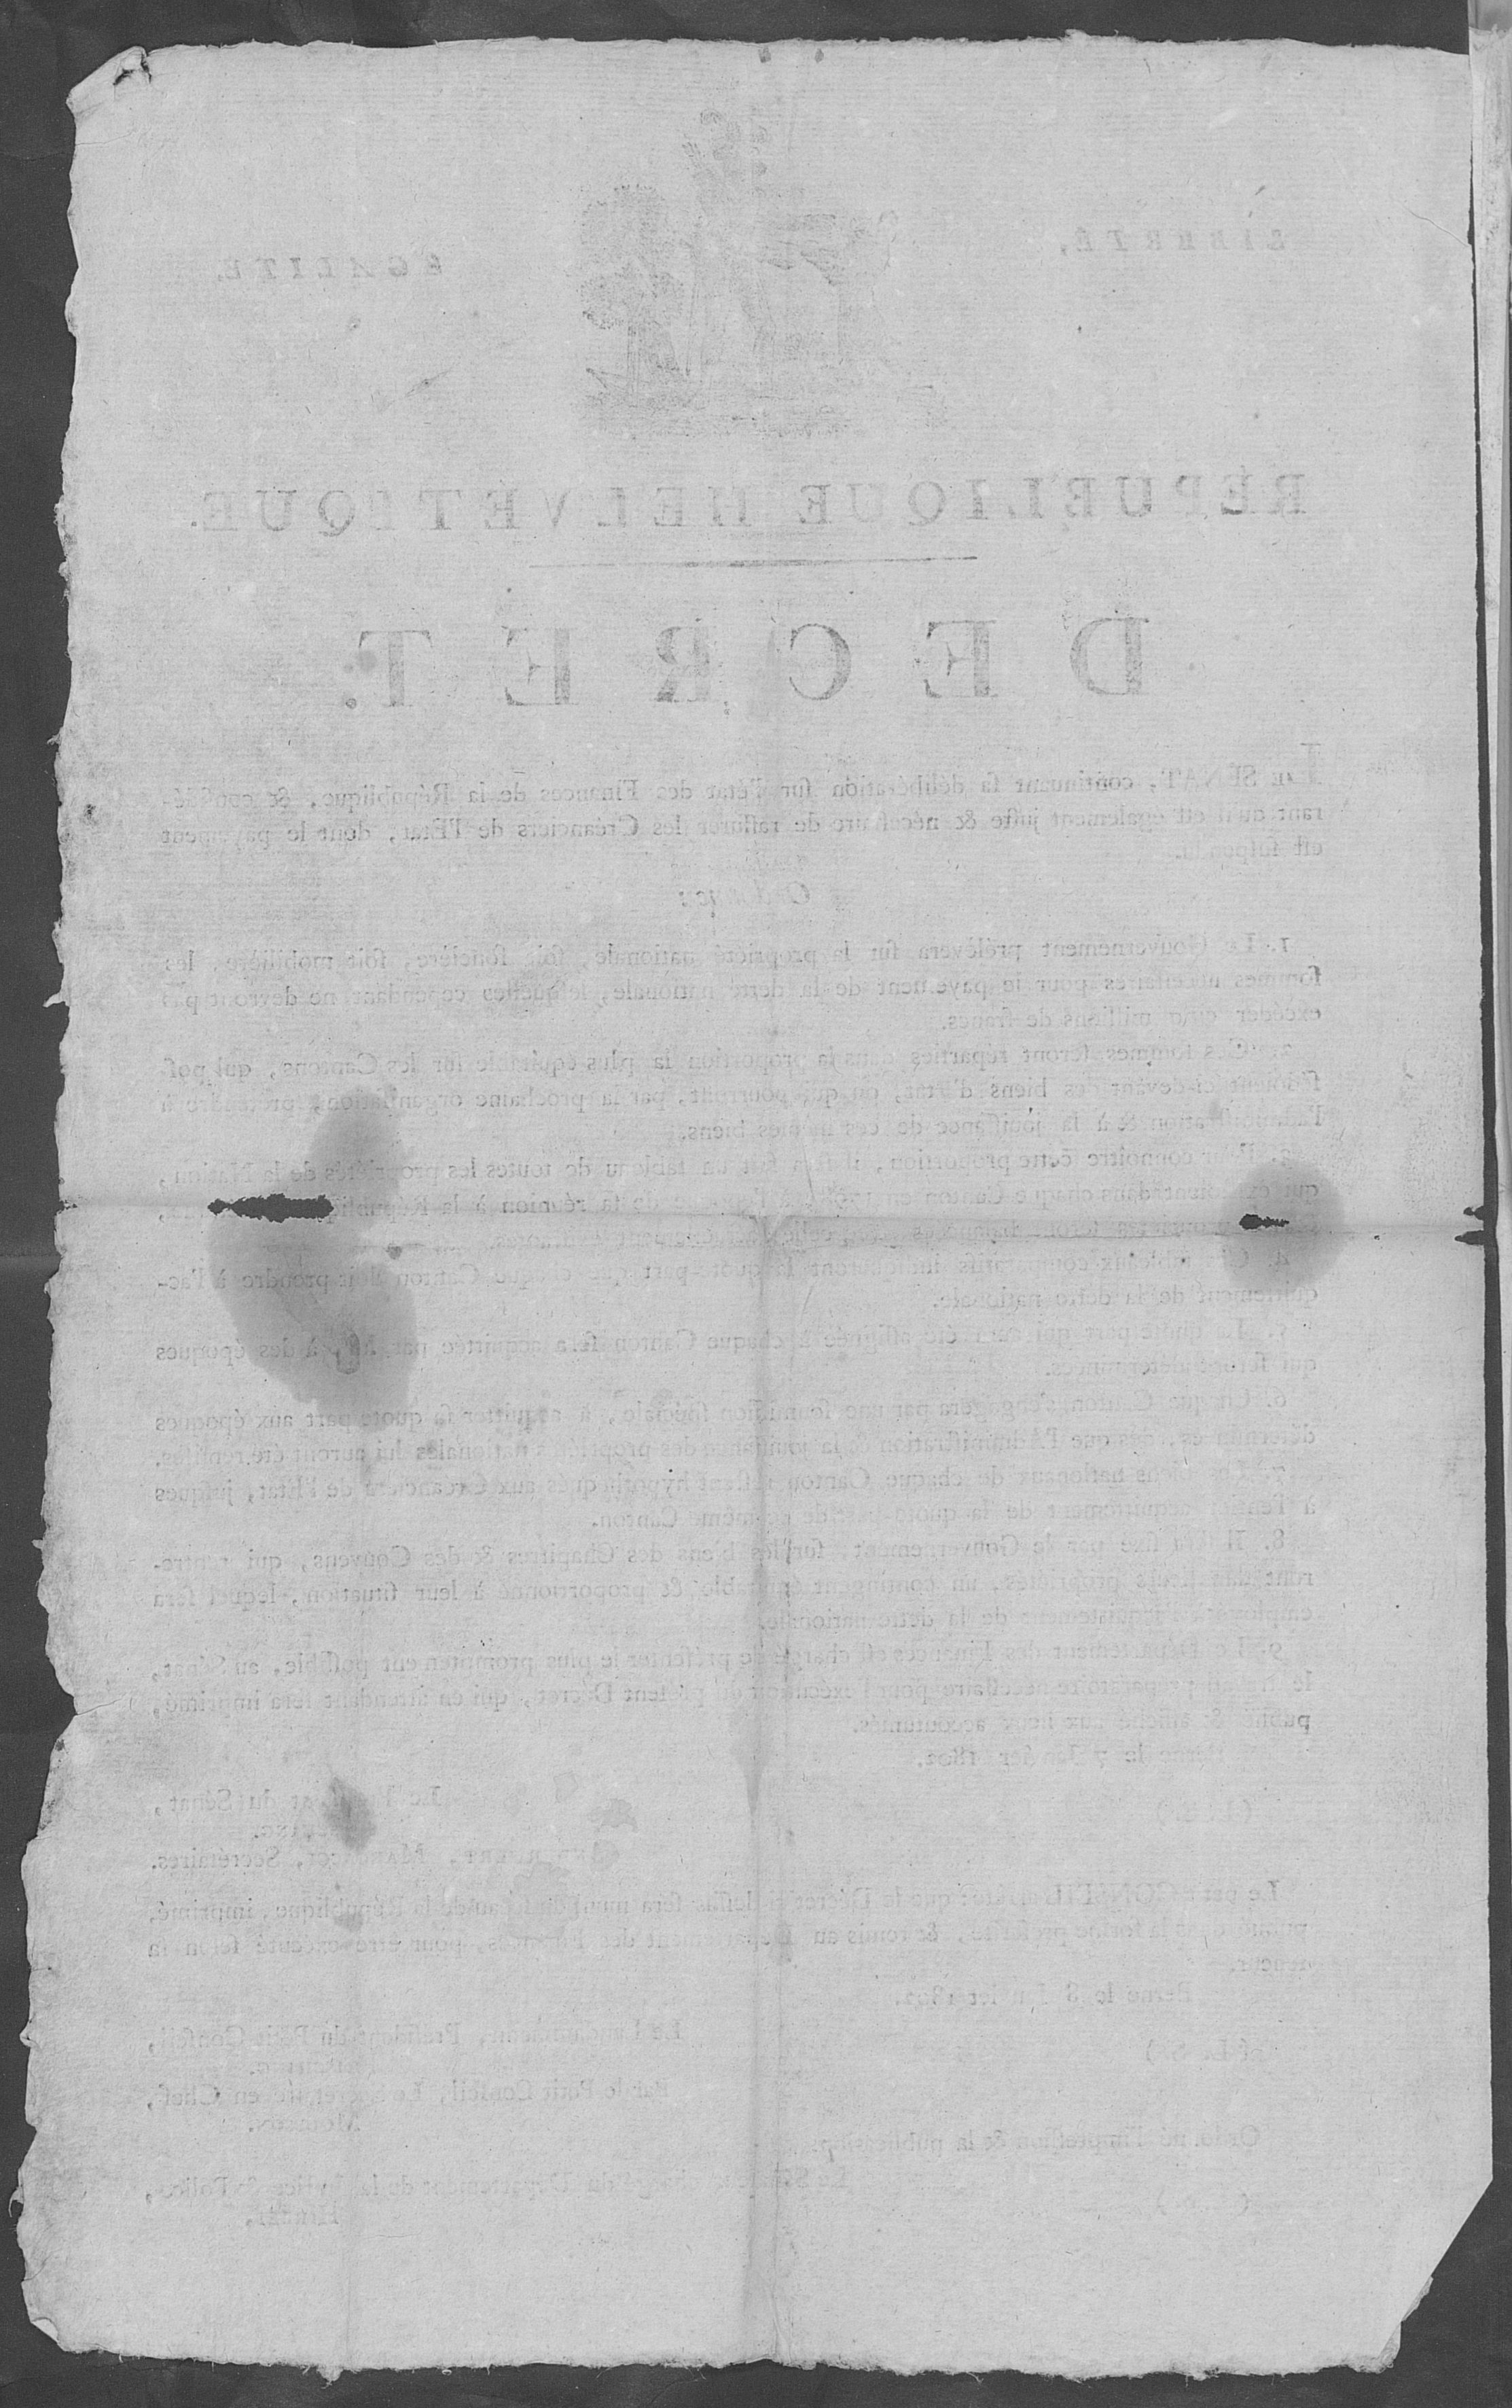 LIBERTÉ,
EGALITÉ.
RÉPUBLIQUE HELVÉTIQUE.
DECRET.
LE SÉNAT, continuant sa délibération sur l'état des Finances de la République, & considé-
rant qu'il est également juste & nécessaire de rassurer les Créanciers de l'Etat, dont le payement
est suspendu.
Ordonne:
1. Le Gouvernement prélèvera sur la propriété nationale, soit foncière, soit mobilière, les
sommes nécessaires pour le payement de la dette nationale, lesquelles cependant ne devront pas
excéder cinq millions de francs.
2. Ces sommes seront réparties dans la proportion la plus équitable sur les Cantons, qui pos-
sédoient ci-devant des biens d'état, ou qui pourront, par la prochaine organisation, prétendre à
l'administration & à la jouissance de ces mêmes biens.
3. Pour connoître cette proportion, il sera fait un tableau de toutes les propriétés de la Nation,
qui existoient dans chaque Canton en de la réunion à la République
4. Ces tableaux comparatifs la quote-part que chaque Canton doit prendre à l'ac-
quittement de la dette nationale.
5. La quote-part qui aura été assignée à chaque Canton sera acquittée par lui, à des époques
qui seront déterminées.
6. Chaque Canton s'engagera par une soumission spéciale, à acquitter sa quote part aux époques
déterminées, dès que l'Administration & la jouissance des propriétés nationales lui auront été remises.
7. Les biens nationaux de chaque Canton restent hypothéqués aux Créanciers de l'Etat, jusques
à l'entier acquittement de la quote-part de ce même Canton.
8. Il sera fixé par le Gouvernement, sur les biens des Chapitres & des Couvens, qui rentre-
ront dans leurs propriétés, un contingent équitable & proportionné à leur situation, lequel sera
employé à l'acquittement de la dette nationale.
9. Le Département des Finances est chargé de présenter le plus promptement possible, au Sénat,
le travail préparatoire nécessaire pour l'exécution du présent Décret, qui en attendant sera imprimé,
publié & affiché aux lieux accoutumés.
Berne le 7 Janvier 1802.
(L. S.)
Le Président du Sénat,
Secrétaires.
Le petit CONSEIL arrête: que le Décret ci dessus sera muni du sceau de la République, imprimé,
publié dans la forme prescrite, & remis au Département des Finances, pour être exécuté selon sa
teneur.
Berne le 8 Janvier 1802.
(L. S.)
Le Landammann, Président du Petit-Conseil,
Par le Petit Conseil, Le Secrétaire en Chef,
Mousson.
Ordonné l'impression & la publication.
chargé du Département de la Justice & Police,